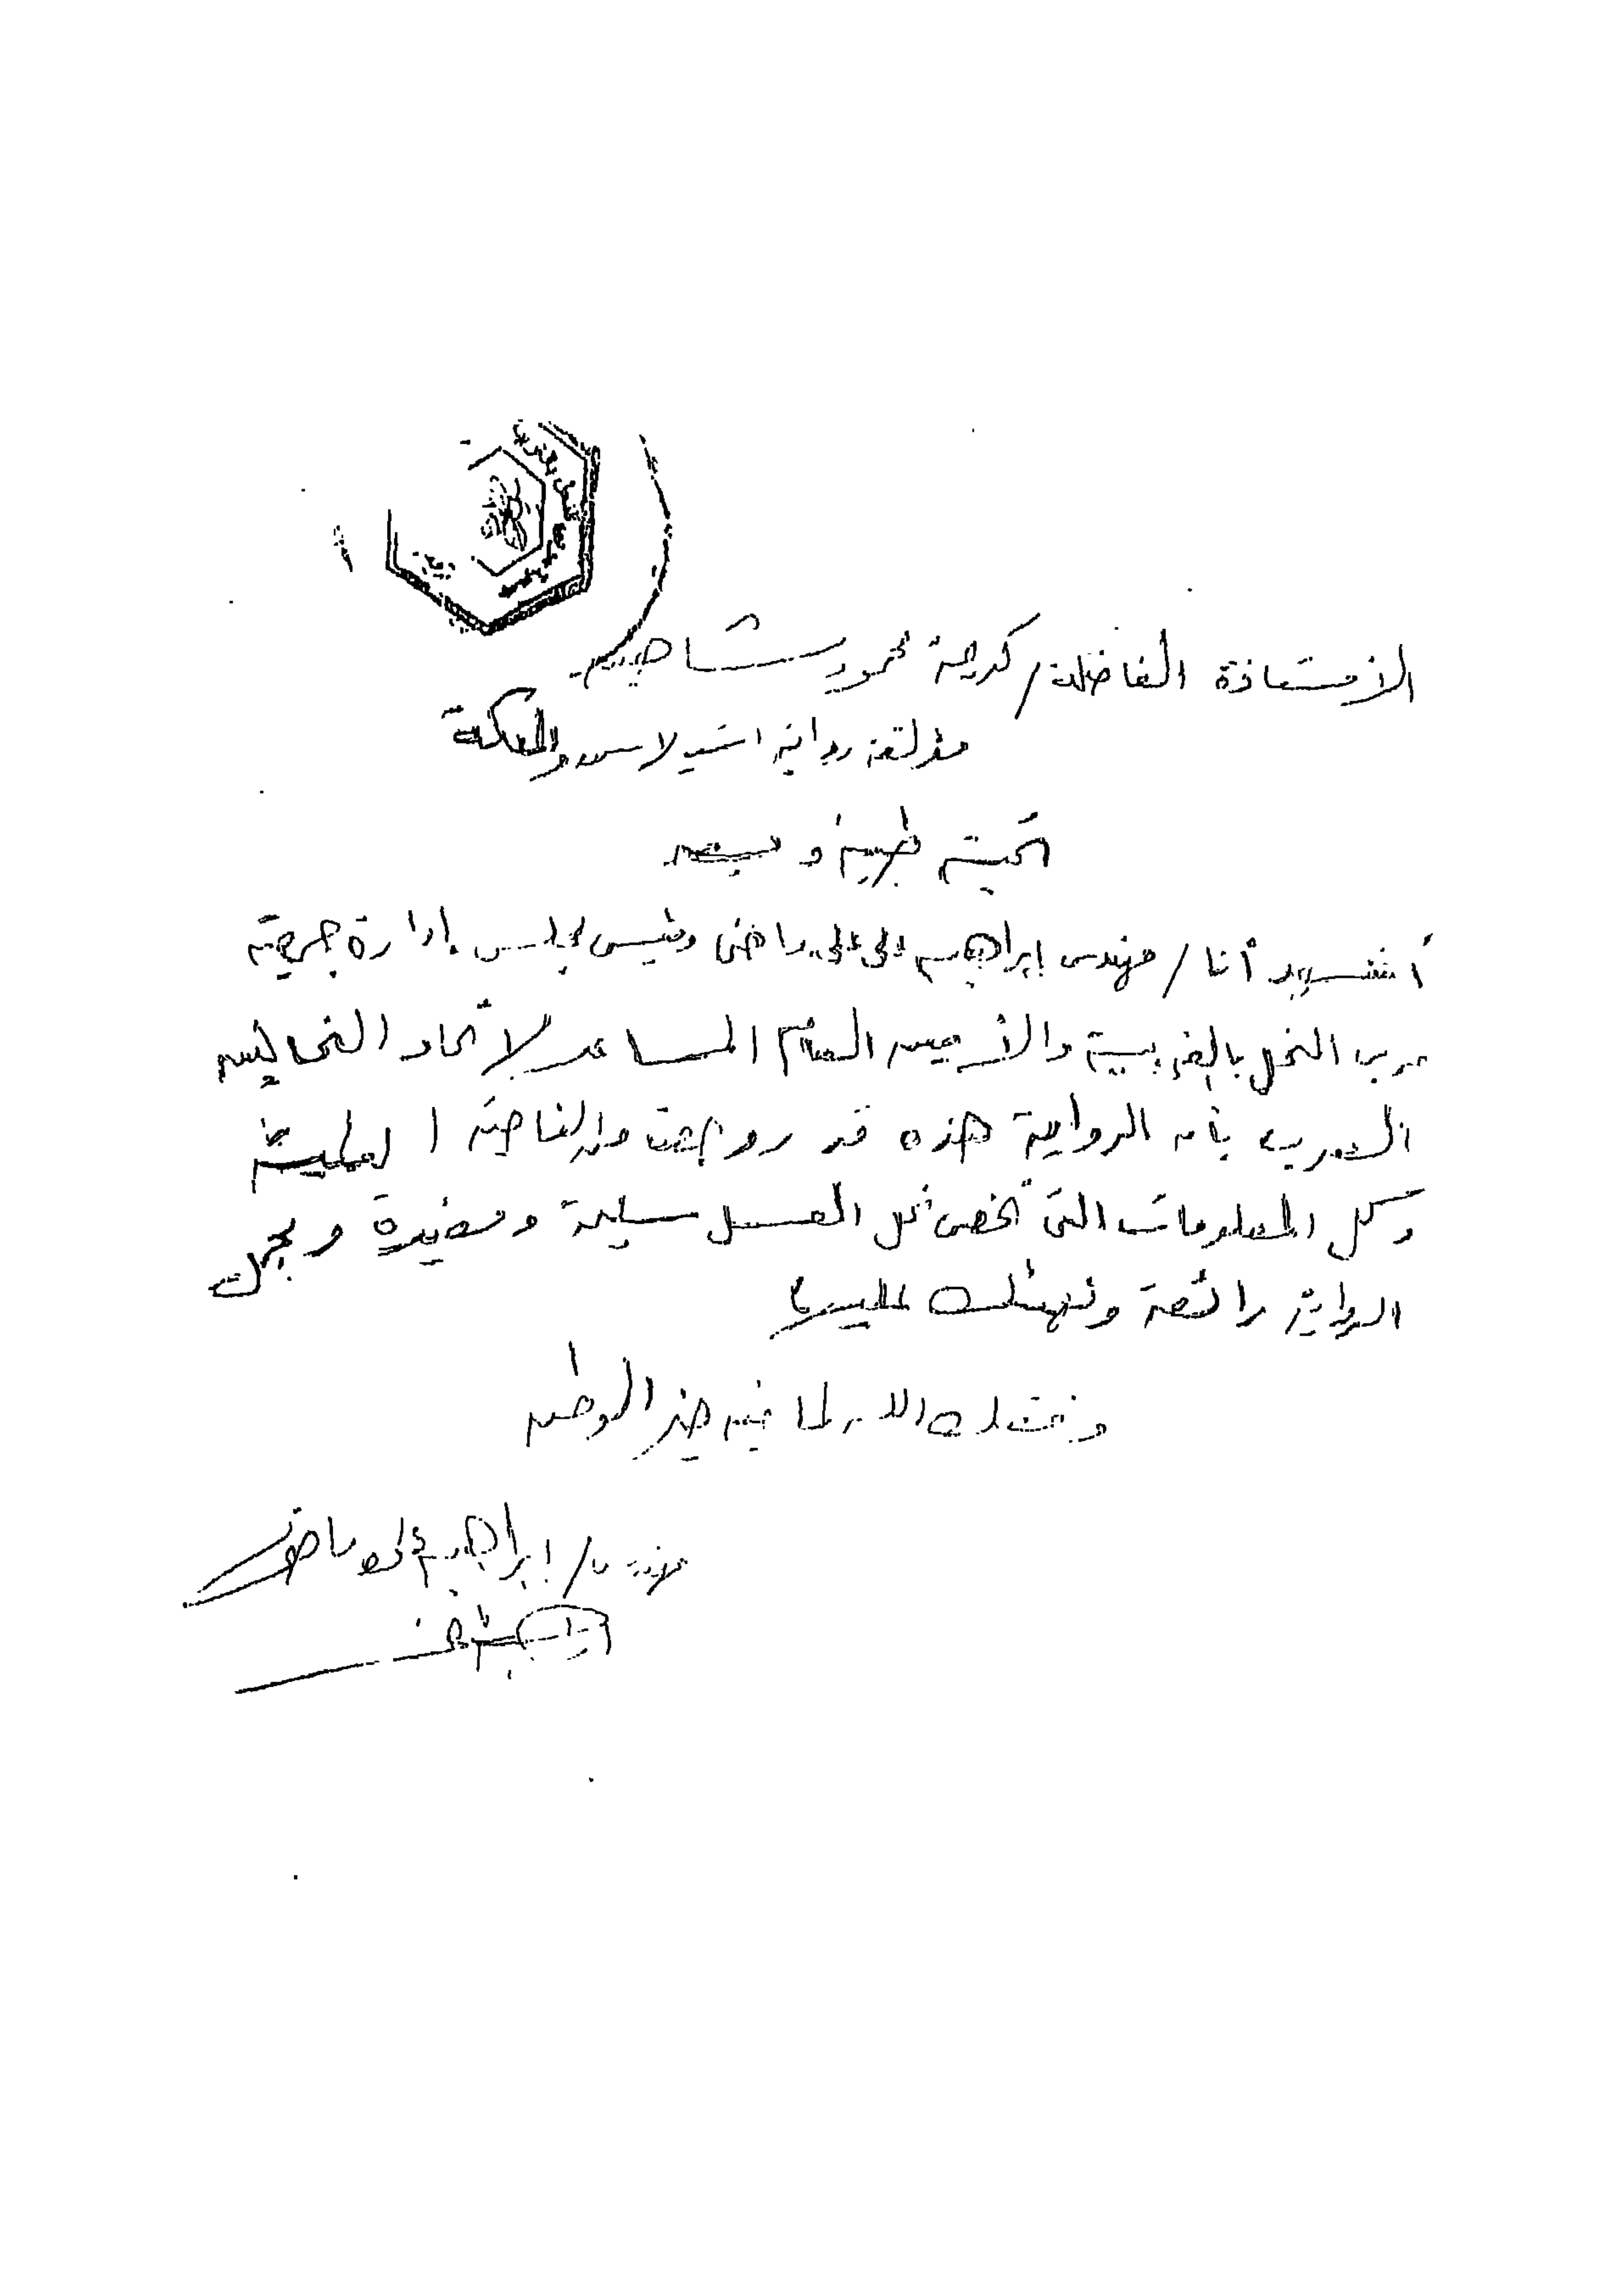 الأستاذة الفاضلة / كريمة محمود شاهين
مؤلفة رواية استيلاس والملكة
تحية طيبة وبعد
أشهد أنا / مهندس إبراهيم على على راضى رئيس مجلس إدارة جمعية
مربى النحل بالغربية والأمين العام المساعد لاتحاد النحالين
العرب بأن الرواية هذه قد روجعت من الناحية العلمية
وكل المعلومات التى تخص نحل العسل سليمة ومفيدة ومجمل
الرواية رائعة ونهنئك عليها
وفقك الله لما فيه خير الوطن
مهندس / إبراهيم على راضى